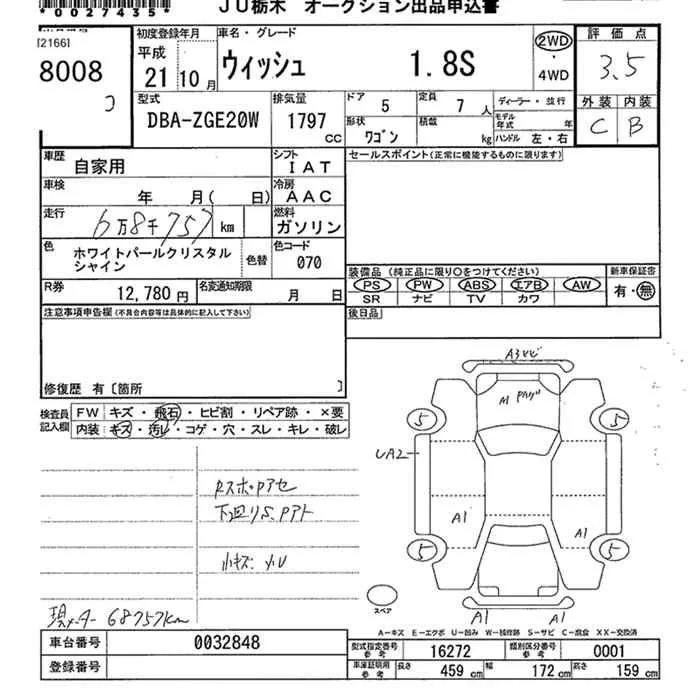 *0027435*
JU栃木 オークション出品申込書
8008
初度登録年月
平成
21 10 月
車名・グレード
ウィッシュ 1.8S
2WD
4WD
評価点
3.5
外装 内装
C B
型式
DBA-ZGE20W
排気量
1797
CC
ドア 5
定員 7 人
形状 ワゴン
積載 kg
ディーラー・並行
モデル年式 年
ハンドル 左・右
車歴 自家用
シフト IAT
セールスポイント(正常に機能するものに限ります)
車検 年 月( 日)
冷房 AAC
走行 6万8千757 km
燃料 ガソリン
色 ホワイトパールクリスタルシャイン
色替
色コード 070
装備品 (純正品に限り○をつけてください)
新車保証書
PS PW ABS エアB AW
有・無
SR ナビ TV カワ
R券 12,780 円
名変通知期限 月 日
注意事項申告欄(不具合内容等は具体的に記入して下さい)
後日品
修復歴 有〔箇所 〕
検査員記入欄
FW キズ・飛石・ヒビ割・リペア跡・×要
内装 キズ・汚レ・コゲ・穴・スレ・キレ・破レ
A3
5 5
UA2
A1 A1
5 5
スペア
A1 A1
現メーター 68757km
A-キズ E-エクボ U-凹み W-補修跡 S-サビ C-腐食 XX-交換済
車台番号 0032848
登録番号
型式指定番号 参考 16272
類別区分番号 参考 0001
車庫証明用 参考 長さ 459 cm 幅 172 cm 高さ 159 cm